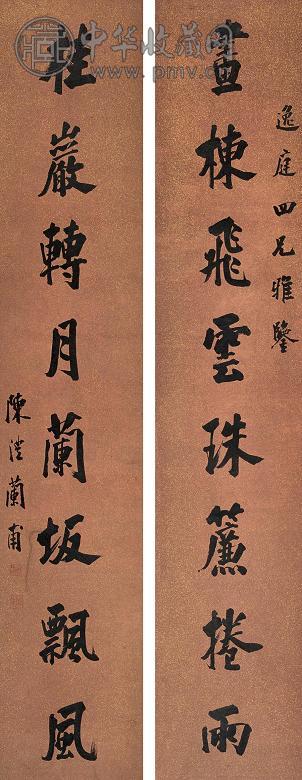 逸庭四兄雅鑒
畫棟飛雲珠簾捲雨
桂巖轉月蘭坂飄風
陳澧蘭甫
中华收藏网
www.pmv.cn